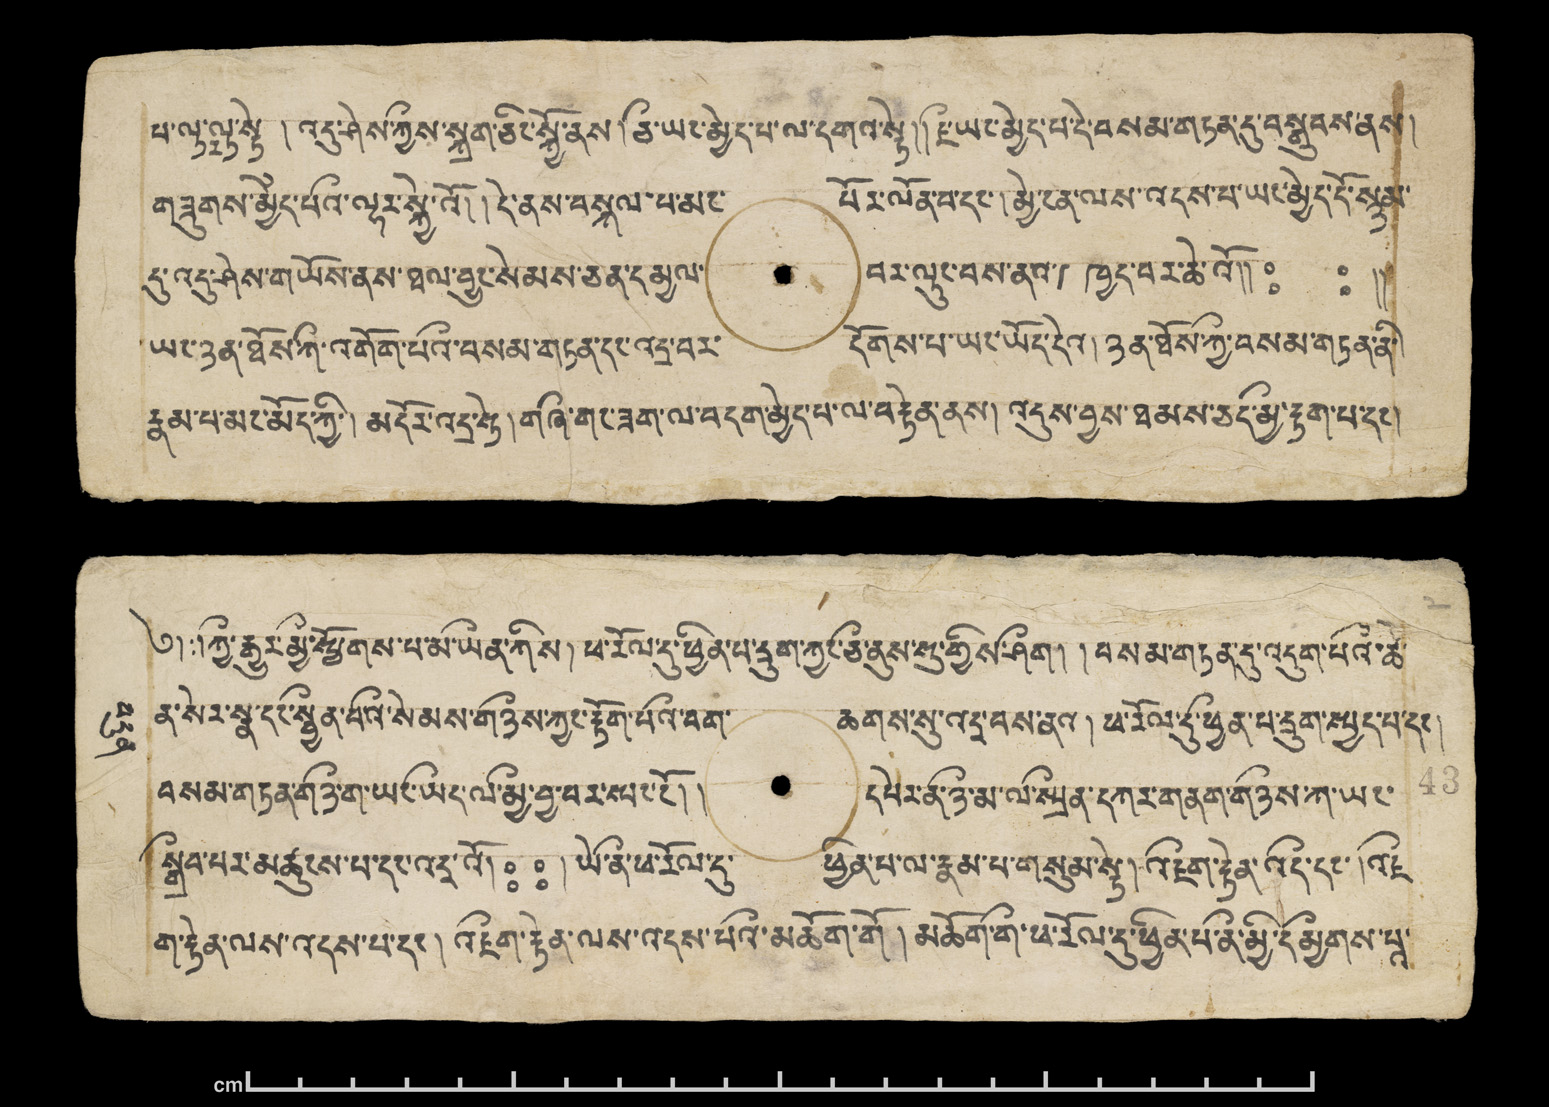 པ་ལྟ་ལྟ་སྟེ། འདུ་ཤེས་ཀྱིས་སྐྲག་ཅིང་སྐྱོ་ནས། ཅི་ཡང་མྱེད་པ་ལ་དགའ་སྟེ།། ཇི་ཡང་མྱེད་པ་དེ་བསམ་གཏན་དུ་བསྒྲུབས་ནས།
གཟུགས་མྱེད་པའི་ལྷར་སྐྱེ་འོ།། དེ་ནས་བསྐལ་པ་མང་པོར་ལོན་བ་དང་། མྱེ་ངན་ལས་འདས་པ་ཡང་མྱེད་དོ་སྙམ་
དུ་འདུ་ཤེས་གཡོས་ནས་ཐལ་བྱུང་སེམས་ཅན་དམྱལ་བར་ལྟུང་བས་ནའ། ཁྱད་བར་ཆེ་འོ།། ༔ ༔ །།
ཡང་ཉན་ཐོས་ཀི་འགོག་པའི་བསམ་གཏན་དང་འདྲ་བར་དོགས་པ་ཡང་ཡོད་དེའ། ཉན་ཐོས་ཀྱི་བསམ་གཏན་ནི།
རྣམ་པ་མང་མོད་ཀྱི། མདོར་འདྲ་སྟེ། གཞི་གང་ཟག་ལ་བདག་མྱེད་པ་ལ་བརྟེན་ནས། འདུས་བྱས་ཐམས་ཅད་མྱི་རྟག་པ་དང་།
༧། །ཀྱི་རྒྱུར་མྱི་སྤྱོགས་པ་མ་ཡིན་ཀིས། ཕ་རོལ་དུ་ཕྱིན་པ་དྲུག་ཀྱང་ཅི་ནུས་སུ་གྱིས་ཤིག།། བསམ་གཏན་དུ་འདུག་པའི་ཚེ་
ན་སེར་སྣ་དང་སྦྱིན་པའི་སེམས་གཉིས་ཀྱང་རྟོག་པའི་བག་ཆགས་སུ་འདྲ་བས་ནའ། ཕ་རོལ་དུ་ཕྱིན་པ་དྲུག་སྤྱད་པ་དང་།
བསམ་གཏན་གཉི་ག་ཡང་ཡིད་ལ་མྱི་བྱ་བར་སྤང་ངོ།། དཔེར་ནི་ཉི་མ་ལ་སྤྲིན་དཀར་གནག་གཉིས་ཀ་ཡང་
སྒྲིབ་པར་མཚུངས་པ་དང་འདྲ་འོ། ༔ ༔ ། ཡེ་ནི་ཕ་རོལ་དུ་ཕྱིན་པ་ལ་རྣམ་པ་གསུམ་སྟེ། འཇིག་རྟེན་འདི་དང་། འཇི
ག་རྟེན་ལས་འདས་པ་དང་། འཇིག་རྟེན་ལས་འདས་པའི་མཆོག་གོ། མཆོག་གི་ཕ་རོལ་དུ་ཕྱིན་པ་ནི་མྱི་དམྱིགས་པའ་
43
cm